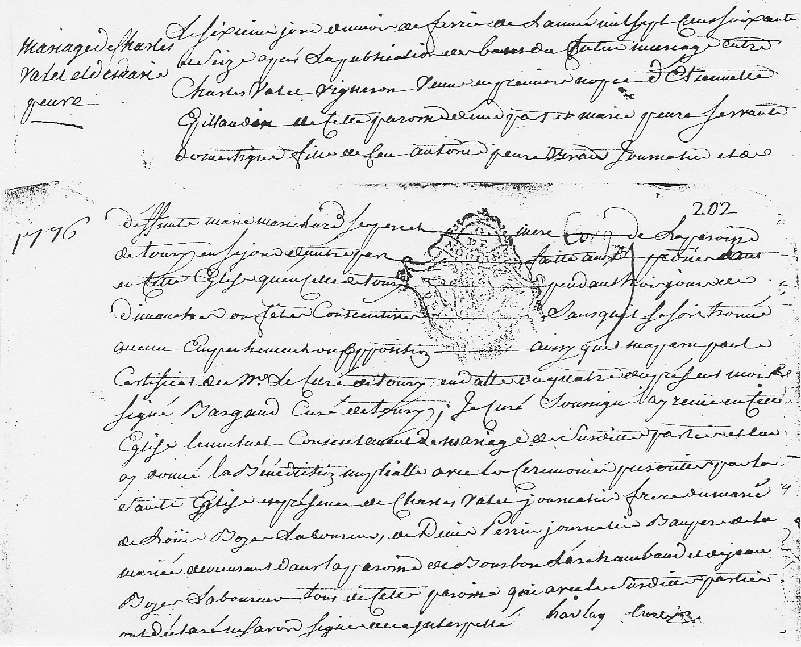 mariage de Charles
Valet et de marie
peure
Le sixieme jour du mois de ferrier de l'année mil sept cens soixante
et Seize après la publication des bancs du futur mariage entre
Charles Valet vigneron Veuf en premiere nopce d'Etiennette
Gillaudin de cette paroisse d'une part et marie peure servante
domestique fille de feu antoine peure vivant journalier et de
202
1776
deffunte marie mere de la paroisse
de toury en sejour d'autre part faite aux prones dans
cette Eglise qu'en celle de toury pendant trois jours de
dimanches ou fêtes Consecutives Sans qu'il se soit trouvé
aucun Empechement ou opposition ainsy que m'apparu par le
Certificat de Mr Le Curé de toury en datte du quatre du present mois
signé Bargaud Curé de toury; Je Curé Soussigné ay reçu en cette
Eglise le mutuel Consentement de mariage des Susdittes parties et leur
ay donné la Bénédiction nuptialle avec les Ceremonies prescrittes par la
Sainte Eglise en présence de Charles Valet journalier frere du marié
de Boyer Laboureur, de Denis Perrin journalier Beaupere de la
mariée demeurant dans la paroisse de Bourbon Larchambaud et de jean
Boyer Laboureur tous de cette paroisse qui avec les Susdittes parties
ont déclaré ne savoir signer de ce interpellé